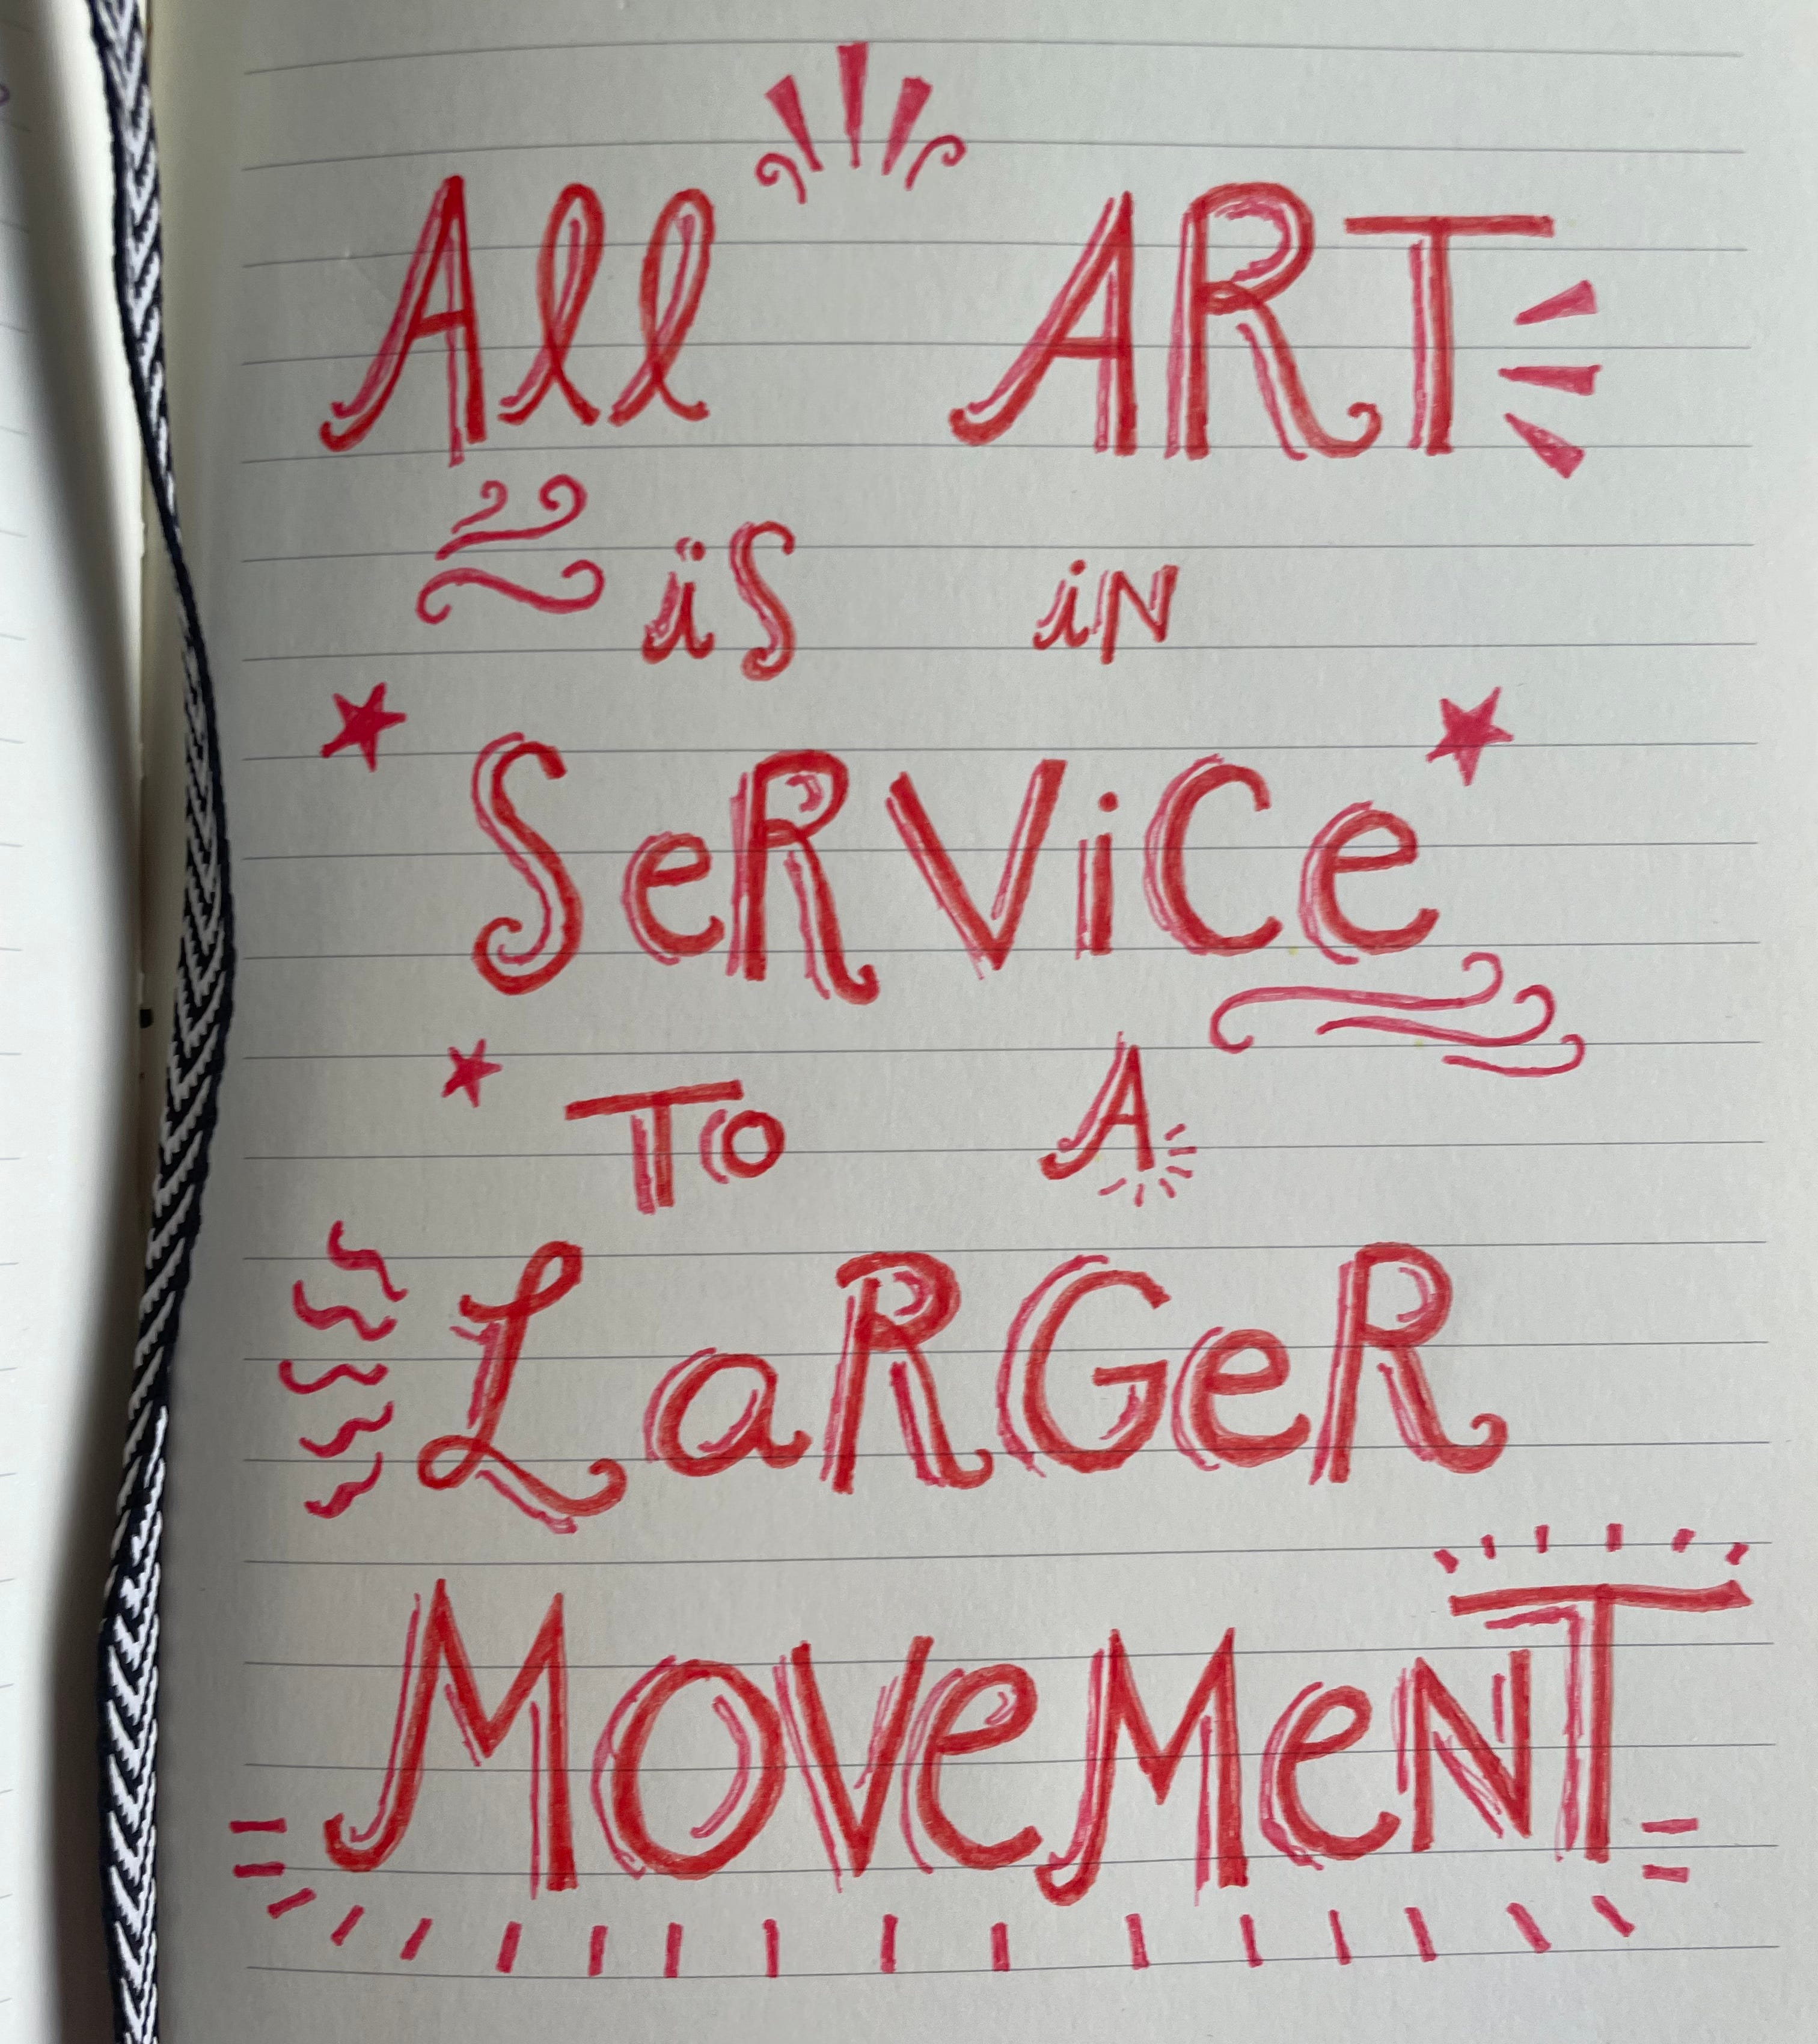 All ART
iS iN
SeRViCe
To A
LaRGeR
MOVeMeNT